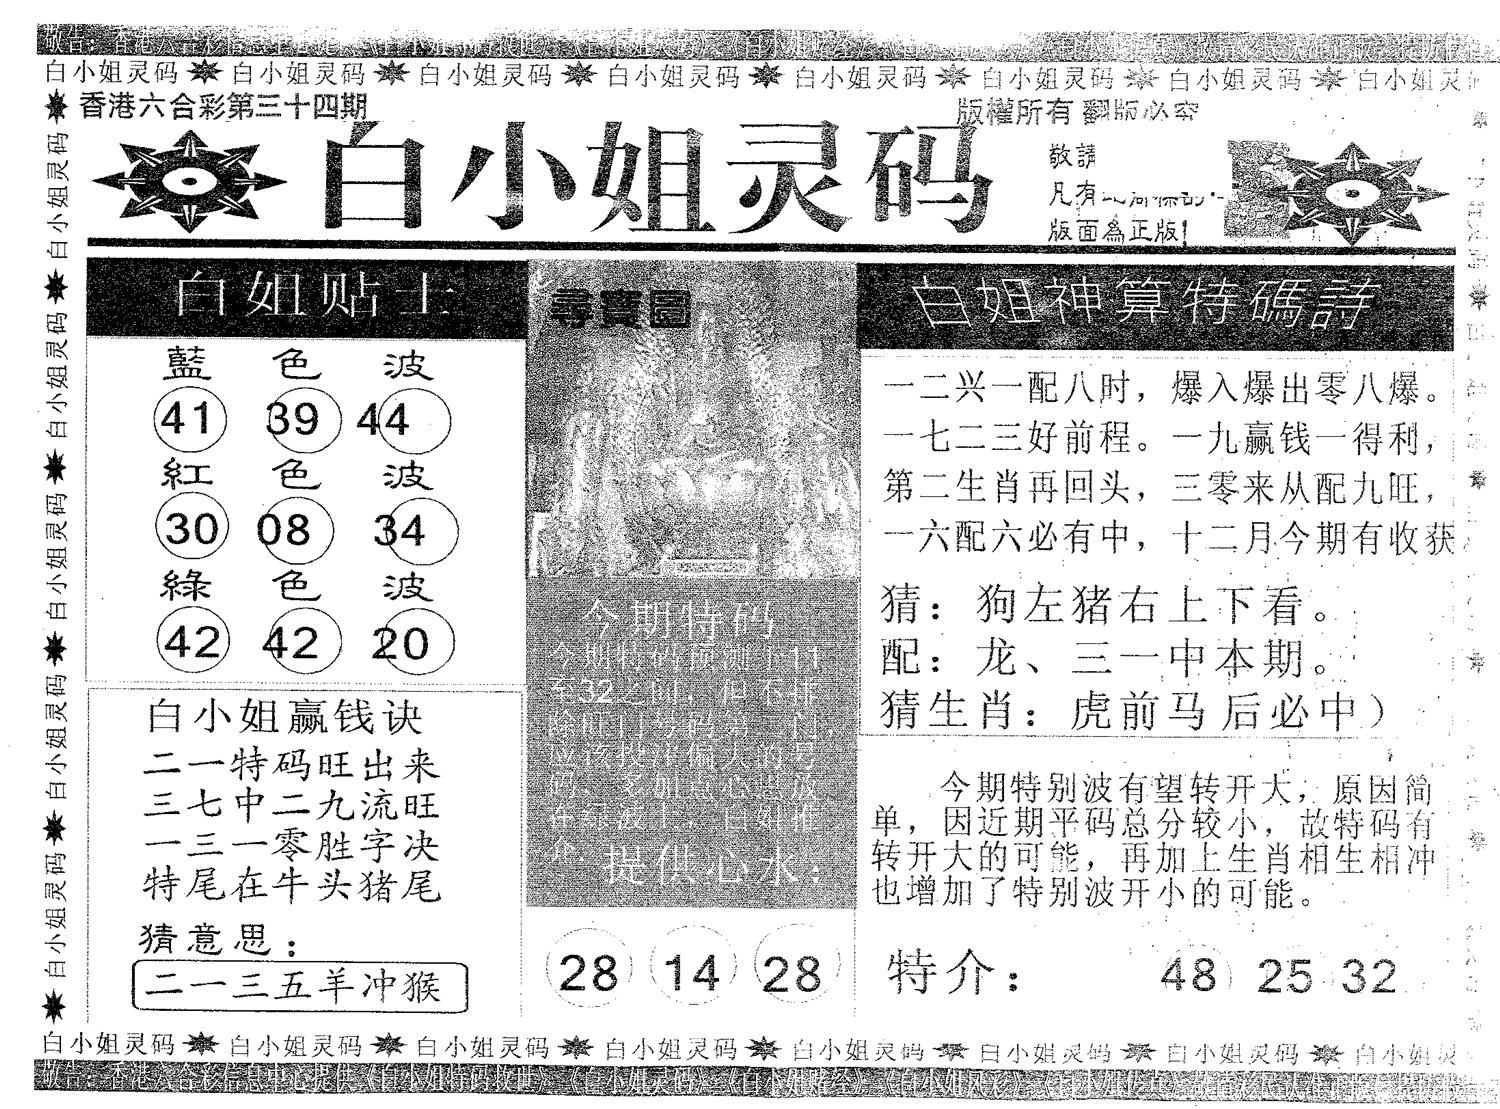 白小姐灵码 白小姐灵码 白小姐灵码 白小姐灵码 白小姐灵码 白小姐灵码 白小姐灵码 白小姐灵
香港六合彩第三十四期
版權所有 翻版必究
白小姐灵码
敬請
凡有
版面為正版!
白姐贴士
藍色波
41 39 44
紅色波
30 08 34
綠色波
42 42 20
白小姐赢钱诀
二一特码旺出来
三七中二九流旺
一三一零胜字决
特尾在牛头猪尾
猜意思：
二一三五羊冲猴
尋寶圖
今期特码
今期特码预测于11
至32之间，但不排
除旺门号码第一门，
应该投注偏大的号
码、多加点心思放
在绿波上，白姐推
介、
提供心水：
28 14 28
白姐神算特碼詩
一二兴一配八时，爆入爆出零八爆。
一七二三好前程。一九赢钱一得利，
第二生肖再回头，三零来从配九旺，
一六配六必有中，十二月今期有收获
猜：狗左猪右上下看。
配：龙、三一中本期。
猜生肖：虎前马后必中）
今期特别波有望转开大，原因简
单，因近期平码总分较小，故特码有
转开大的可能，再加上生肖相生相冲
也增加了特别波开小的可能。
特介： 48 25 32
白小姐灵码 白小姐灵码 白小姐灵码 白小姐灵码 白小姐灵码
白小姐灵码 白小姐灵码 白小姐灵码 白小姐灵码 白小姐灵码 白小姐灵码 白小姐灵码 白小姐灵
敬告：香港六合彩信息中心提供《白小姐特码救世》《白小姐灵码》《白小姐赌经》《白小姐风彩》